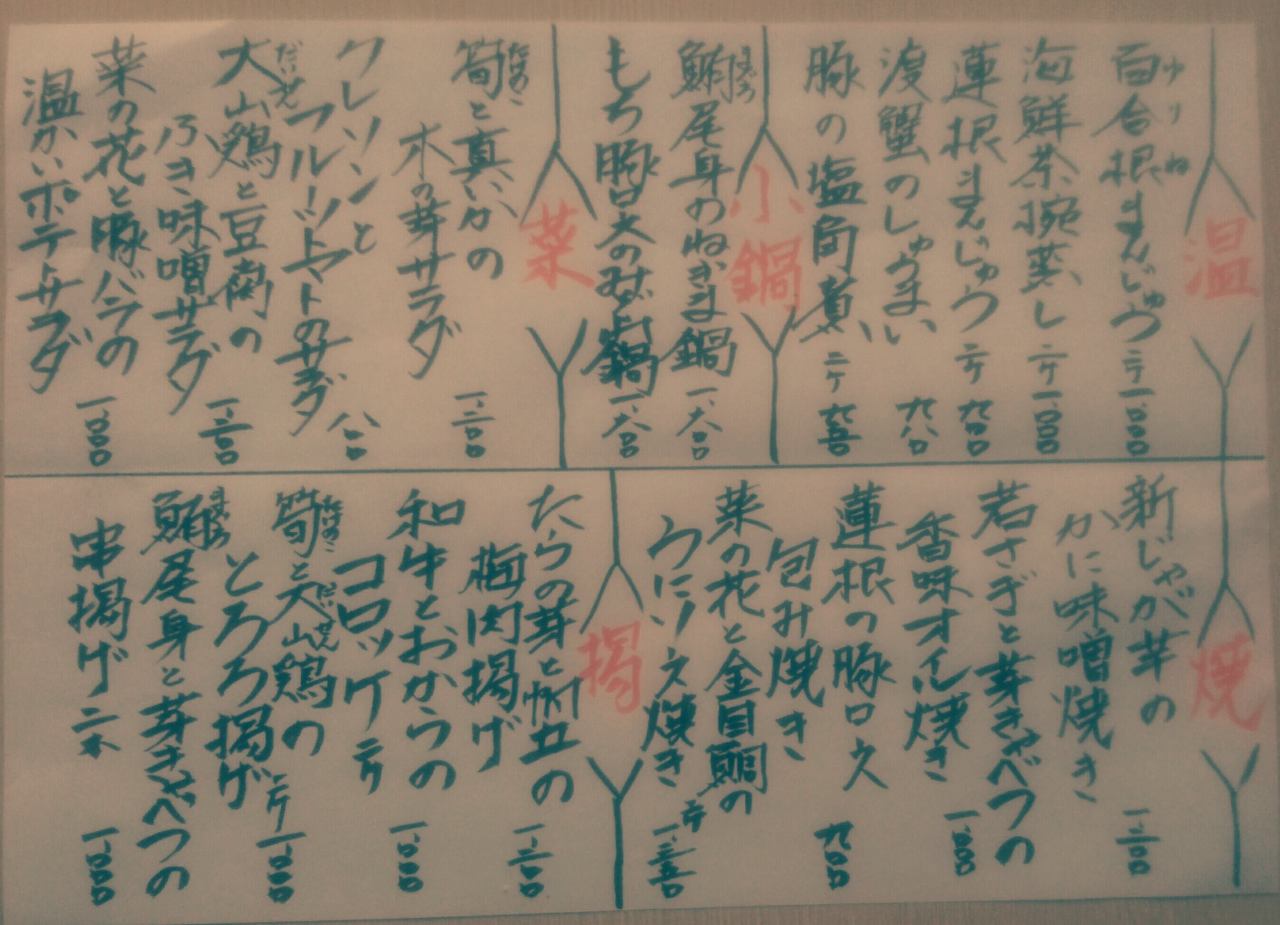 温
百合根まんじゅう 二ヶ 一、〇〇〇
ゆりね
海鮮茶碗蒸し 二ヶ 一、〇〇〇
蓮根まんじゅう 二ヶ 九〇〇
渡蟹のしゅうまい 九八〇
豚の塩角煮 二ヶ 九五〇
小鍋
鮪尾身のねぎま鍋 一、六八〇
まぐろ
もち豚白菜のみぞれ鍋 一、六八〇
菜
筍と真いかの
たけのこ
木の芽サラダ 一、二〇〇
クレソンと
フルーツトマトのサラダ 八八〇
大山鶏と豆腐の
だいせん
ふき味噌サラダ 一、二〇〇
菜の花と豚バラの
温かいポテトサラダ 一、〇〇〇
焼
新じゃが芋の
かに味噌焼き 一、二〇〇
若さぎと芽きゃべつの
香味オイル焼き 一、〇〇〇
蓮根の豚ロース
包み焼き 九〇〇
菜の花と金目鯛の
うにソース焼き 二ヶ 一、三五〇
揚
たらの芽と帆立の
梅肉揚げ 一、二〇〇
和牛とおからの
コロッケ 二ヶ 一、〇〇〇
筍と大山鶏の
たけのこ だいせん
とろろ揚げ 二ヶ 一、〇〇〇
鮪尾身と芽きゃべつの
まぐろ
串揚げ 二本 一、〇〇〇